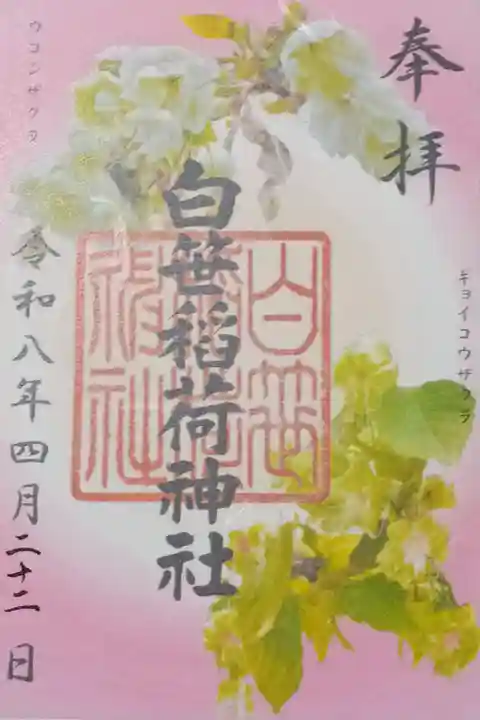 奉拝
キョイコウザクラ
白笹稲荷神社
白笹稲荷神社
ウコンザクラ
令和八年四月二十二日